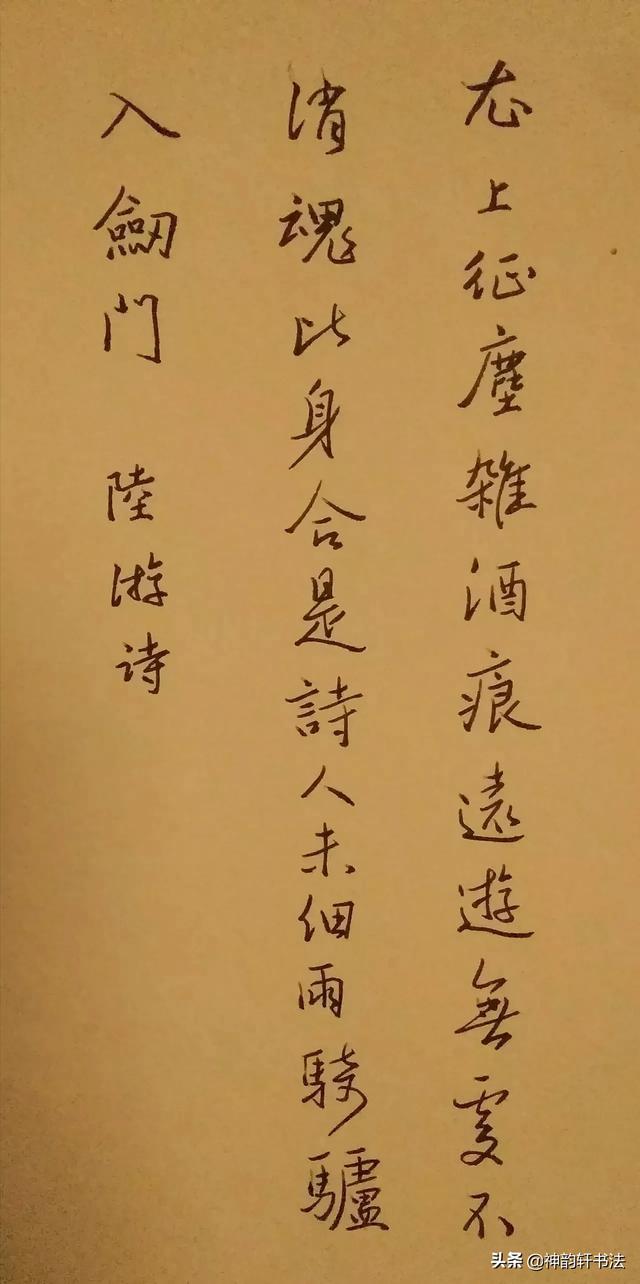 衣上征塵雜酒痕遠遊無處不
消魂此身合是詩人未細雨騎驢
入劒門 陸游诗
头条 @神韵轩书法